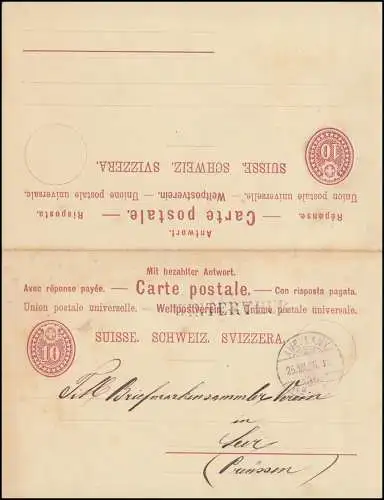 Réponse. — Carte postale. — Risposta.
Antwort.
Union postale universelle. — Weltpostverein. — Unione postale universale.
SUISSE. SCHWEIZ. SVIZZERA.
10
Mit bezahlter Antwort.
Avec réponse payée. — Carte postale. — Con risposta pagata.
Union postale universelle. — Weltpostverein. — Unione postale universale.
SUISSE. SCHWEIZ. SVIZZERA.
10
Briefmarkensammler Verein
in
(Preussen)